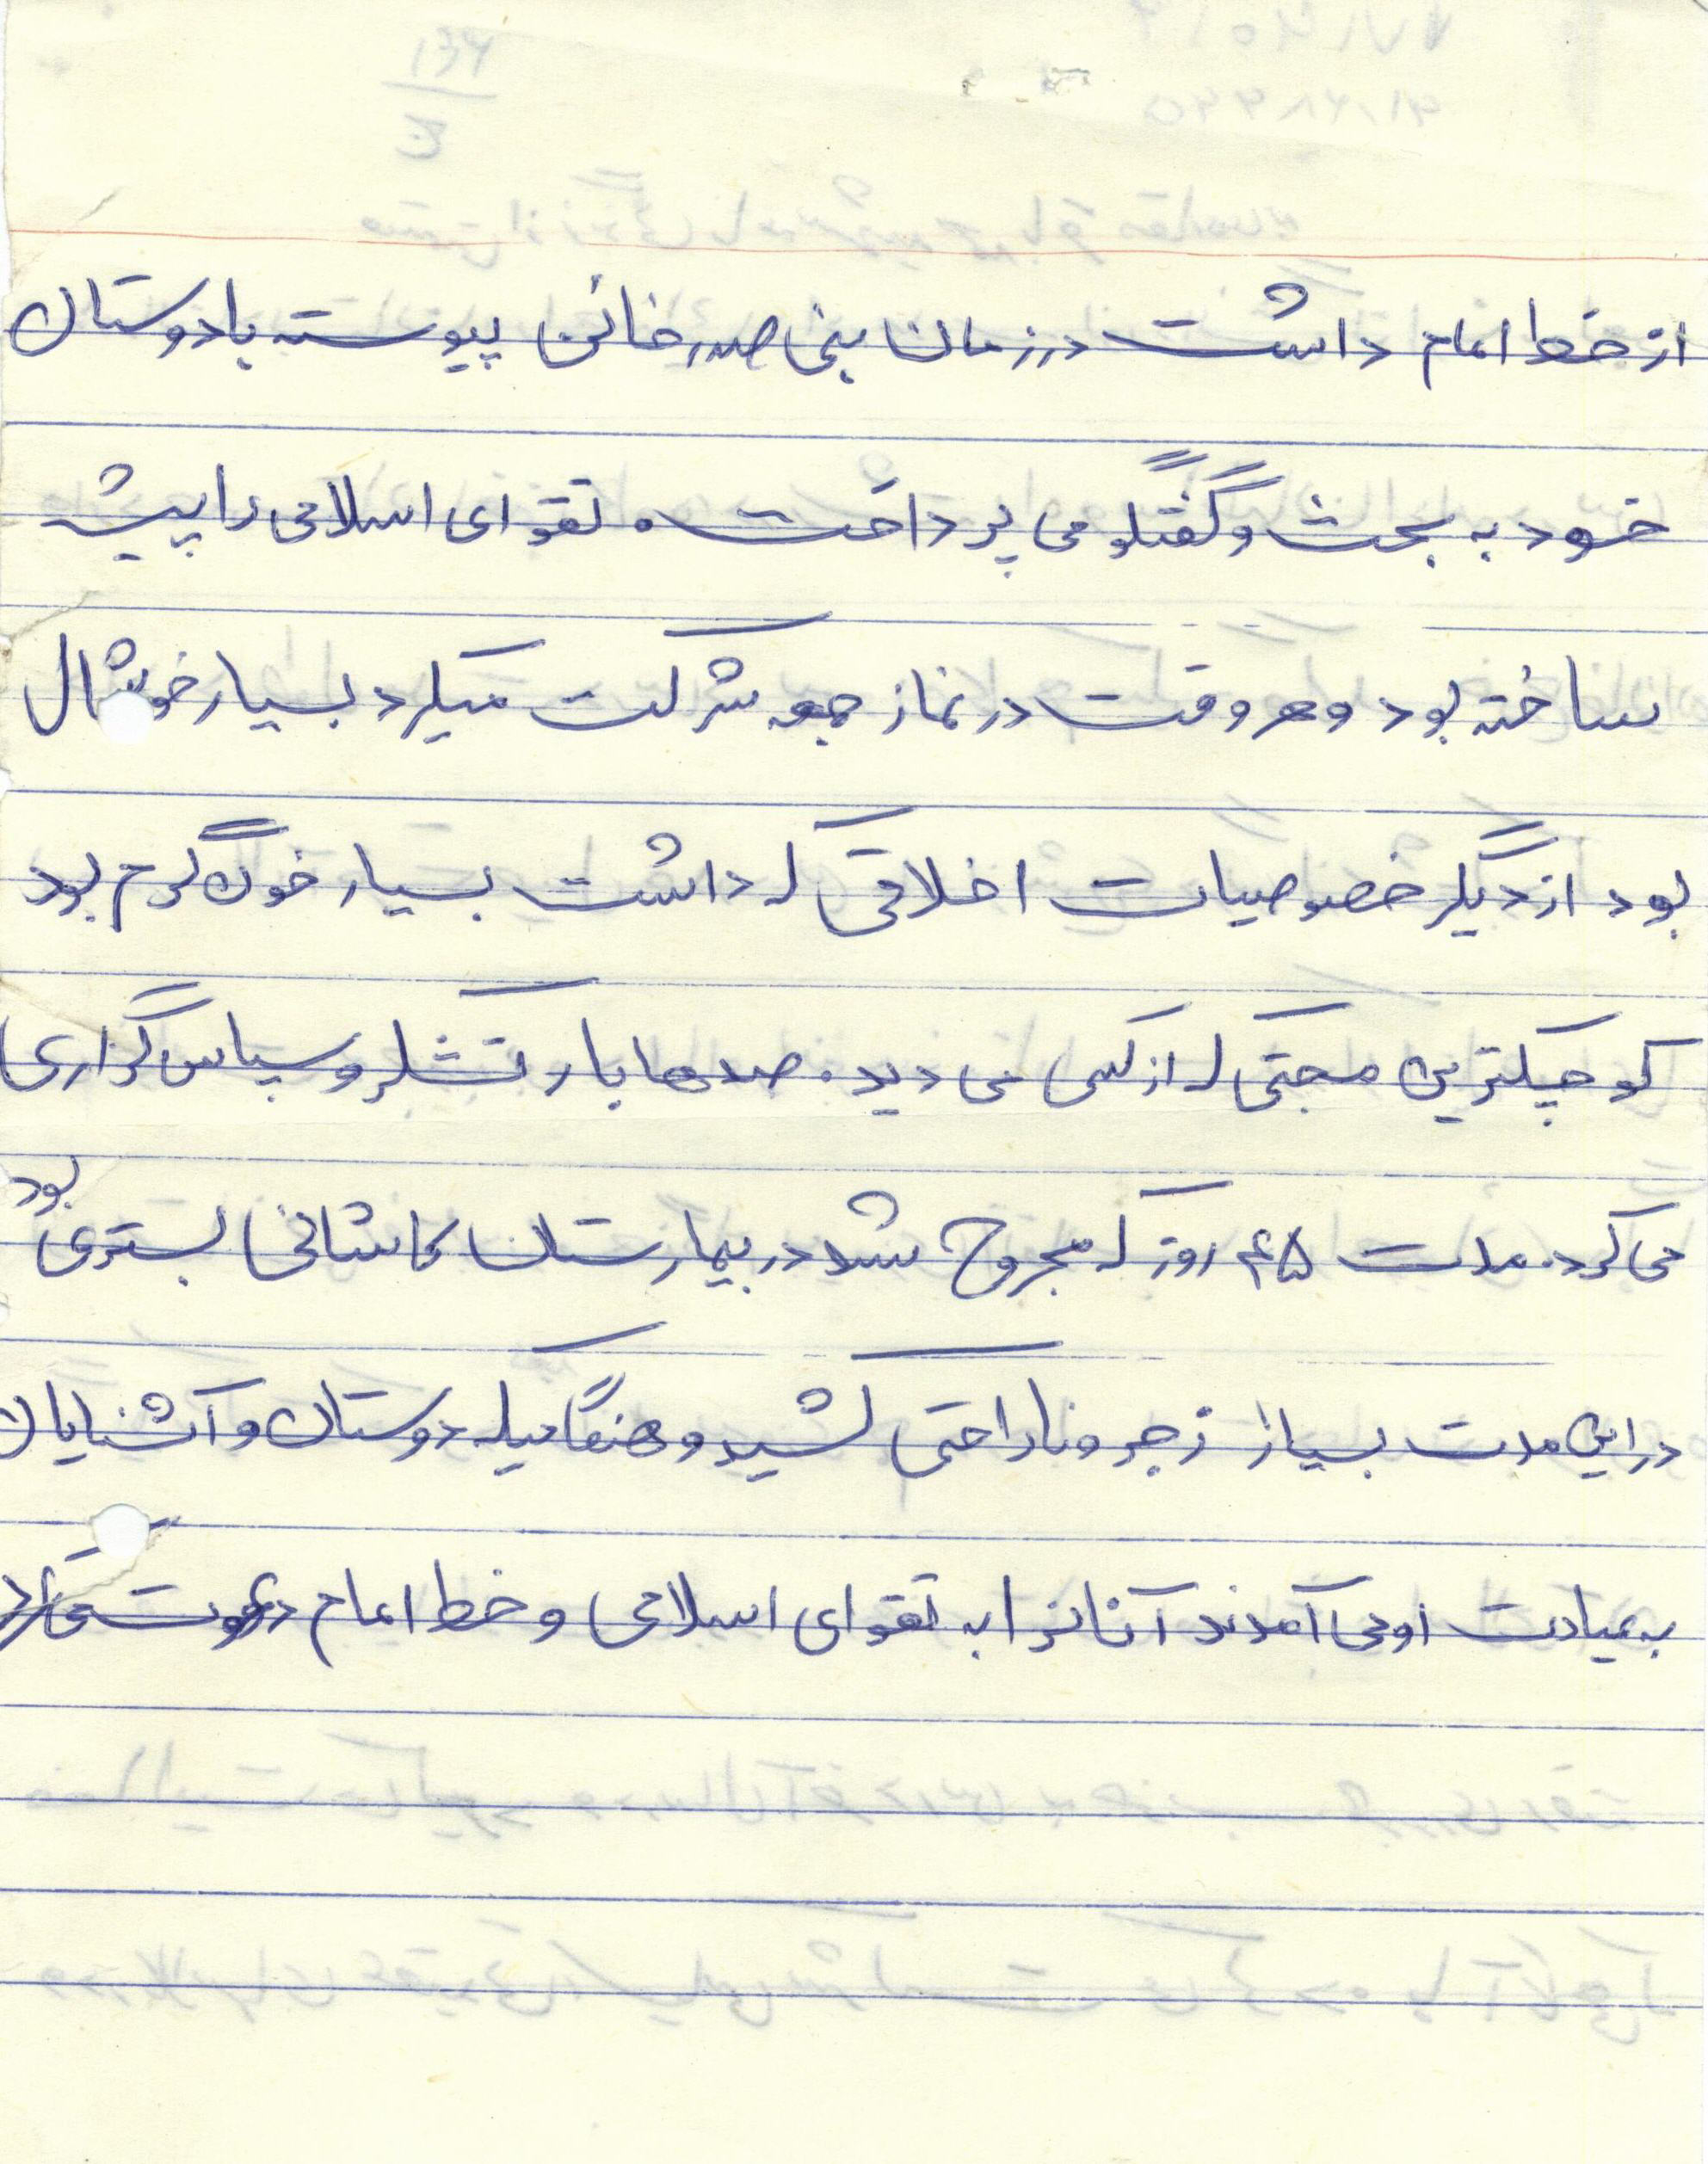 از خط امام داشت در زمان بنی صدر خائن پیوسته با دوستان
خود به بحث و گفتگو می پرداخت. تقوای اسلامی را پیشه
ساخته بود و هر وقت در نماز جمعه شرکت میکرد بسیار خوشال
بود از دیگر خصوصیات اخلاقی که داشت بسیار خون گرم بود
کوچکترین محبتی که از کسی می دید. صدها بار تشکر و سپاس گزاری
می کرد. مدت ۴۵ روز که مجروح شد در بیمارستان کاشانی بستری بود
در این مدت بسیار زجر و ناراحتی کشید و هنگامیکه دوستان و آشنایان
به عیادت او می آمدند آنانرا به تقوای اسلامی و خط امام دعوت میکرد